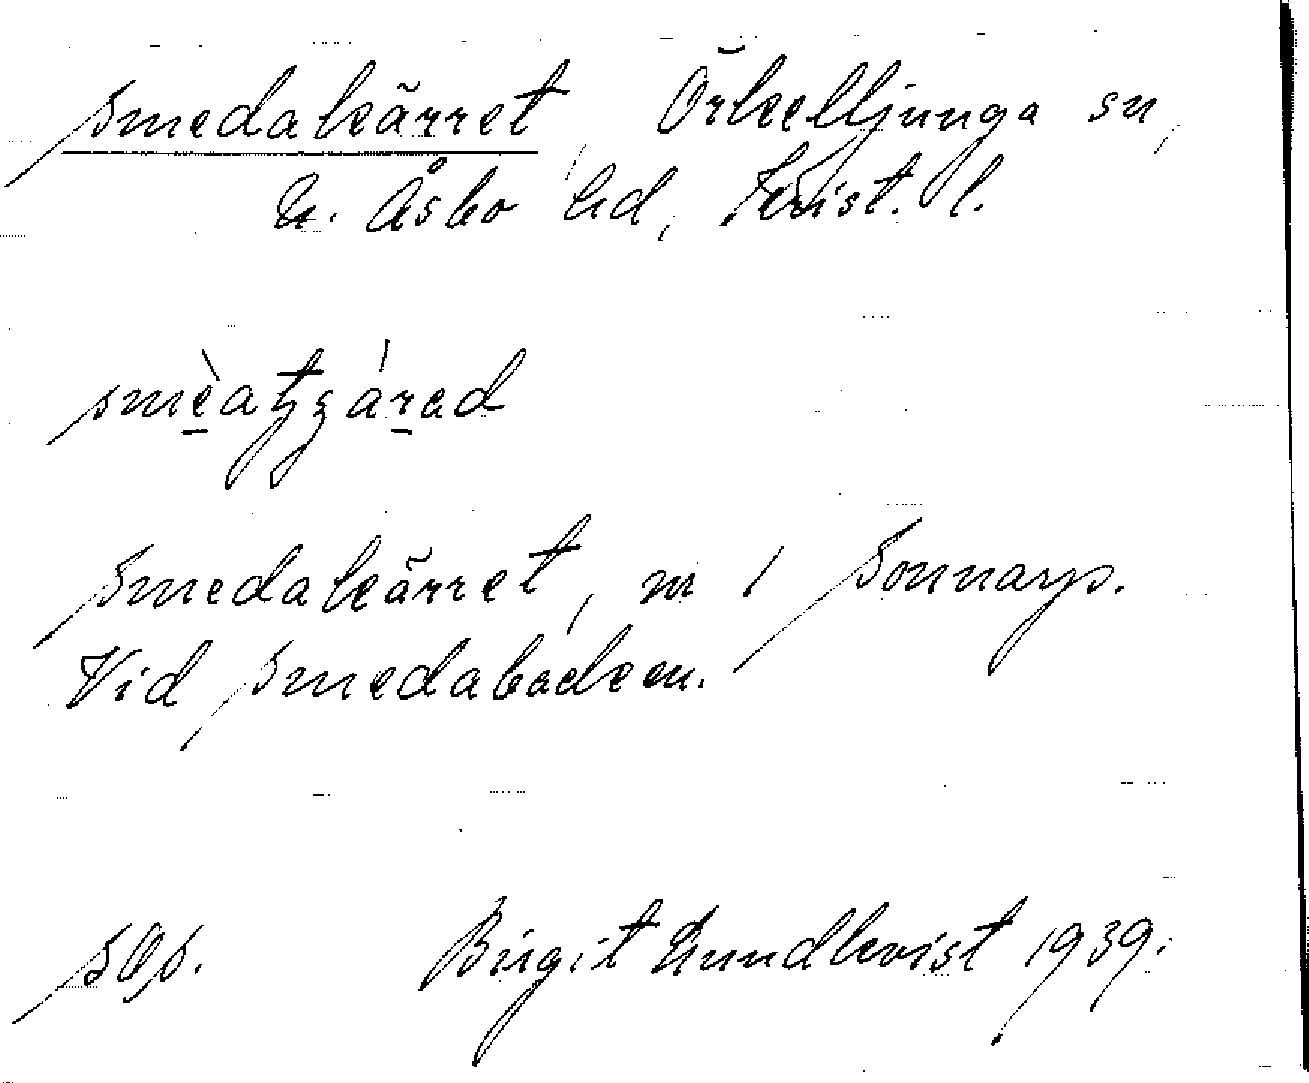 Smedakärret, Örkelljunga sn,
N. Åsbo hd, Krist. l.
Smedakärret, nr 1 Sonnarp.
Vid Smedabacken.
Birgit Lundkvist 1939.